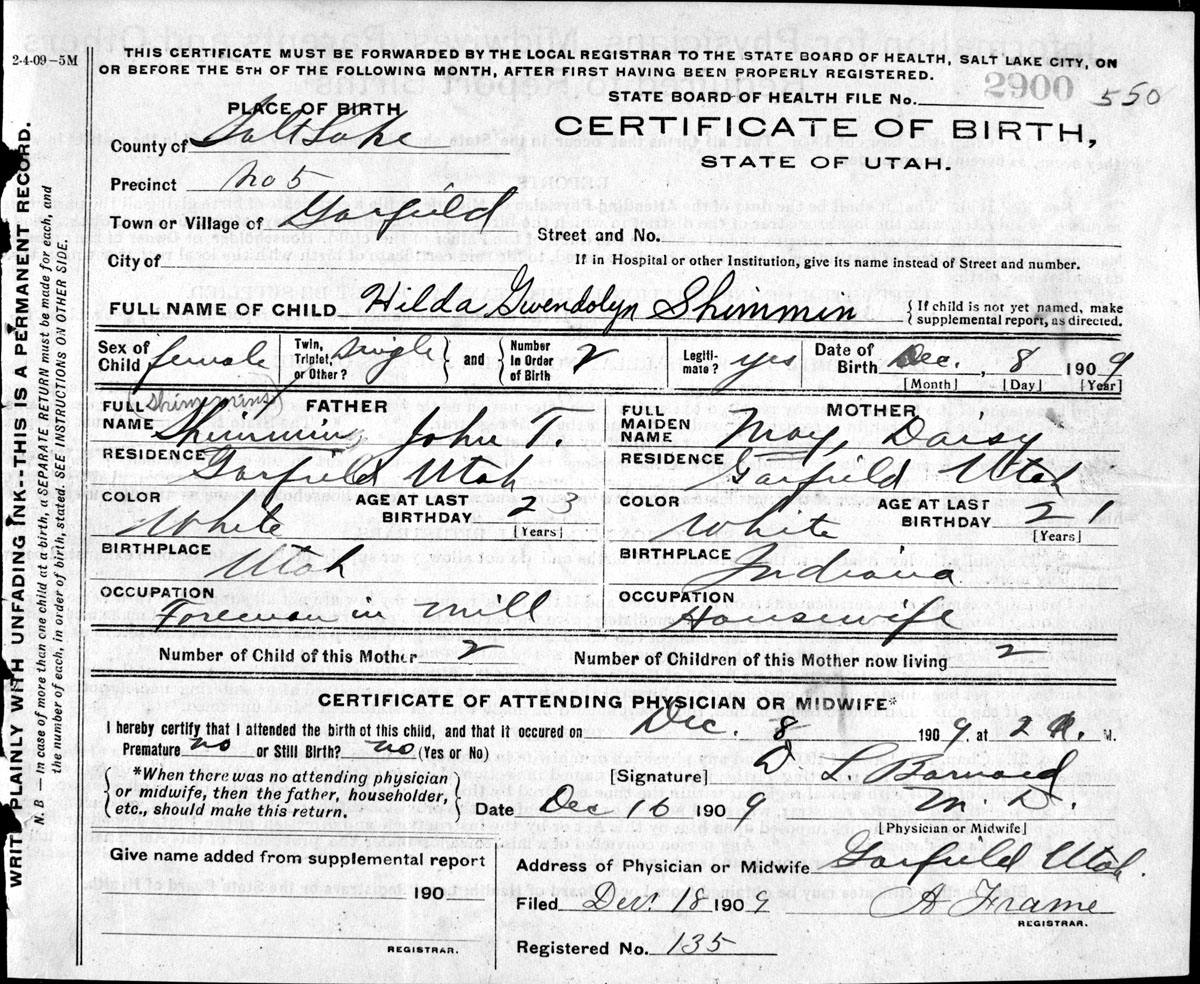 2-4-09-5M
THIS CERTIFICATE MUST BE FORWARDED BY THE LOCAL REGISTRAR TO THE STATE BOARD OF HEALTH, SALT LAKE CITY, ON
OR BEFORE THE 5TH OF THE FOLLOWING MONTH, AFTER FIRST HAVING BEEN PROPERLY REGISTERED.
STATE BOARD OF HEALTH FILE No. 2900 550
PLACE OF BIRTH
CERTIFICATE OF BIRTH,
STATE OF UTAH.
County of Salt Lake
Precinct No 5
Town or Village of Garfield
Street and No.
City of
If in Hospital or other Institution, give its name instead of Street and number.
FULL NAME OF CHILD Hilda Gwendolyn Shimmin {If child is not yet named, make
supplemental report, as directed.
Sex of Child female Twin, Triplet, or Other? single and Number in Order of Birth 2 Legitimate? yes Date of Birth Dec. , 8 1909
[Month] [Day] [Year]
(Shimmins)
FATHER
FULL NAME Shimmin, John T.
RESIDENCE Garfield Utah
COLOR White AGE AT LAST BIRTHDAY 23
[Years]
BIRTHPLACE Utah
OCCUPATION Foreman in mill
MOTHER
FULL MAIDEN NAME May, Daisy
RESIDENCE Garfield Utah
COLOR White AGE AT LAST BIRTHDAY 21
[Years]
BIRTHPLACE Indiana
OCCUPATION Housewife
Number of Child of this Mother 2 Number of Children of this Mother now living 2
CERTIFICATE OF ATTENDING PHYSICIAN OR MIDWIFE*
I hereby certify that I attended the birth of this child, and that it occured on Dec. 8 1909, at 2 A. M.
Premature no or Still Birth? no (Yes or No)
{*When there was no attending physician
or midwife, then the father, householder,
etc., should make this return.}
[Signature] L Barnard
Date Dec 16 1909 M. D.
[Physician or Midwife]
Give name added from supplemental report
190
REGISTRAR.
Address of Physician or Midwife Garfield Utah.
Filed Dec. 18 1909 A Frame
REGISTRAR.
Registered No. 135
WRITE PLAINLY WITH UNFADING INK--THIS IS A PERMANENT RECORD.
N. B.—In case of more than one child at a birth, a SEPARATE RETURN must be made for each, and
the number of each, in order of birth, stated. SEE INSTRUCTIONS ON OTHER SIDE.